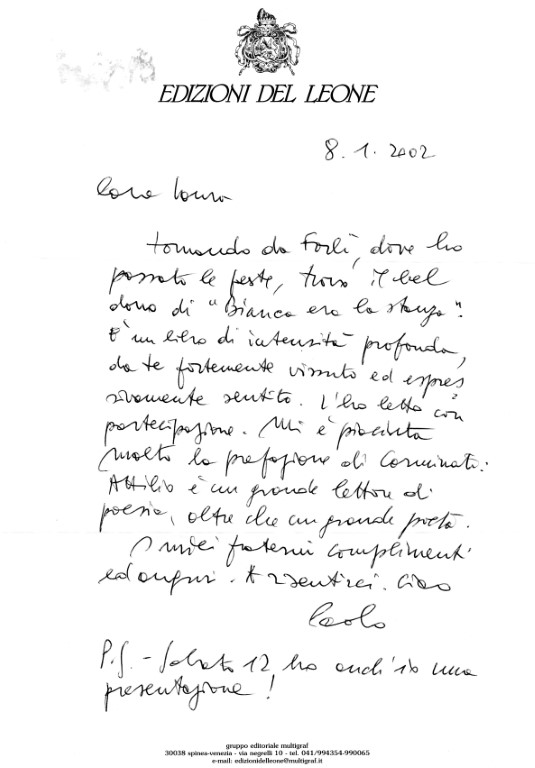 EDIZIONI DEL LEONE
8. 1. 2002
Cara Laura
tornando da Forlì, dove ho
passato le feste, trovo il bel
dono di "Bianca era la stanza".
È un libro di intensità profonda,
da te fortemente vissuto ed espres
sivamente sentito. L'ho letto con
partecipazione. Mi è piaciuta
molto la prefazione di Carminati:
Attilio è un grande lettore di
poesia, oltre che un grande poeta.
I miei fraterni complimenti
ed auguri. A risentirci. Ciao
Paolo
P.S. - Sabato 12, ho anch'io una
presentazione!
gruppo editoriale multigraf
30038 spinea-venezia - via negrelli 10 - tel. 041/994354-990065
e-mail: edizionidelleone@multigraf.it